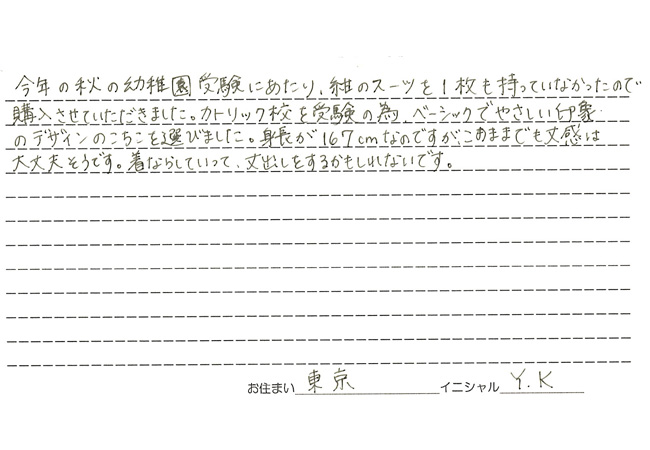 今年の秋の幼稚園受験にあたり、紺のスーツを1枚も持っていなかったので
購入させていただきました。カトリック校を受験の為、ベーシックでやさしい印象
のデザインのこちらを選びました。身長が167cmなのですが、このままでも丈感は
大丈夫そうです。着ならしていって、丈出しをするかもしれないです。
お住まい 東京 イニシャル Y.K